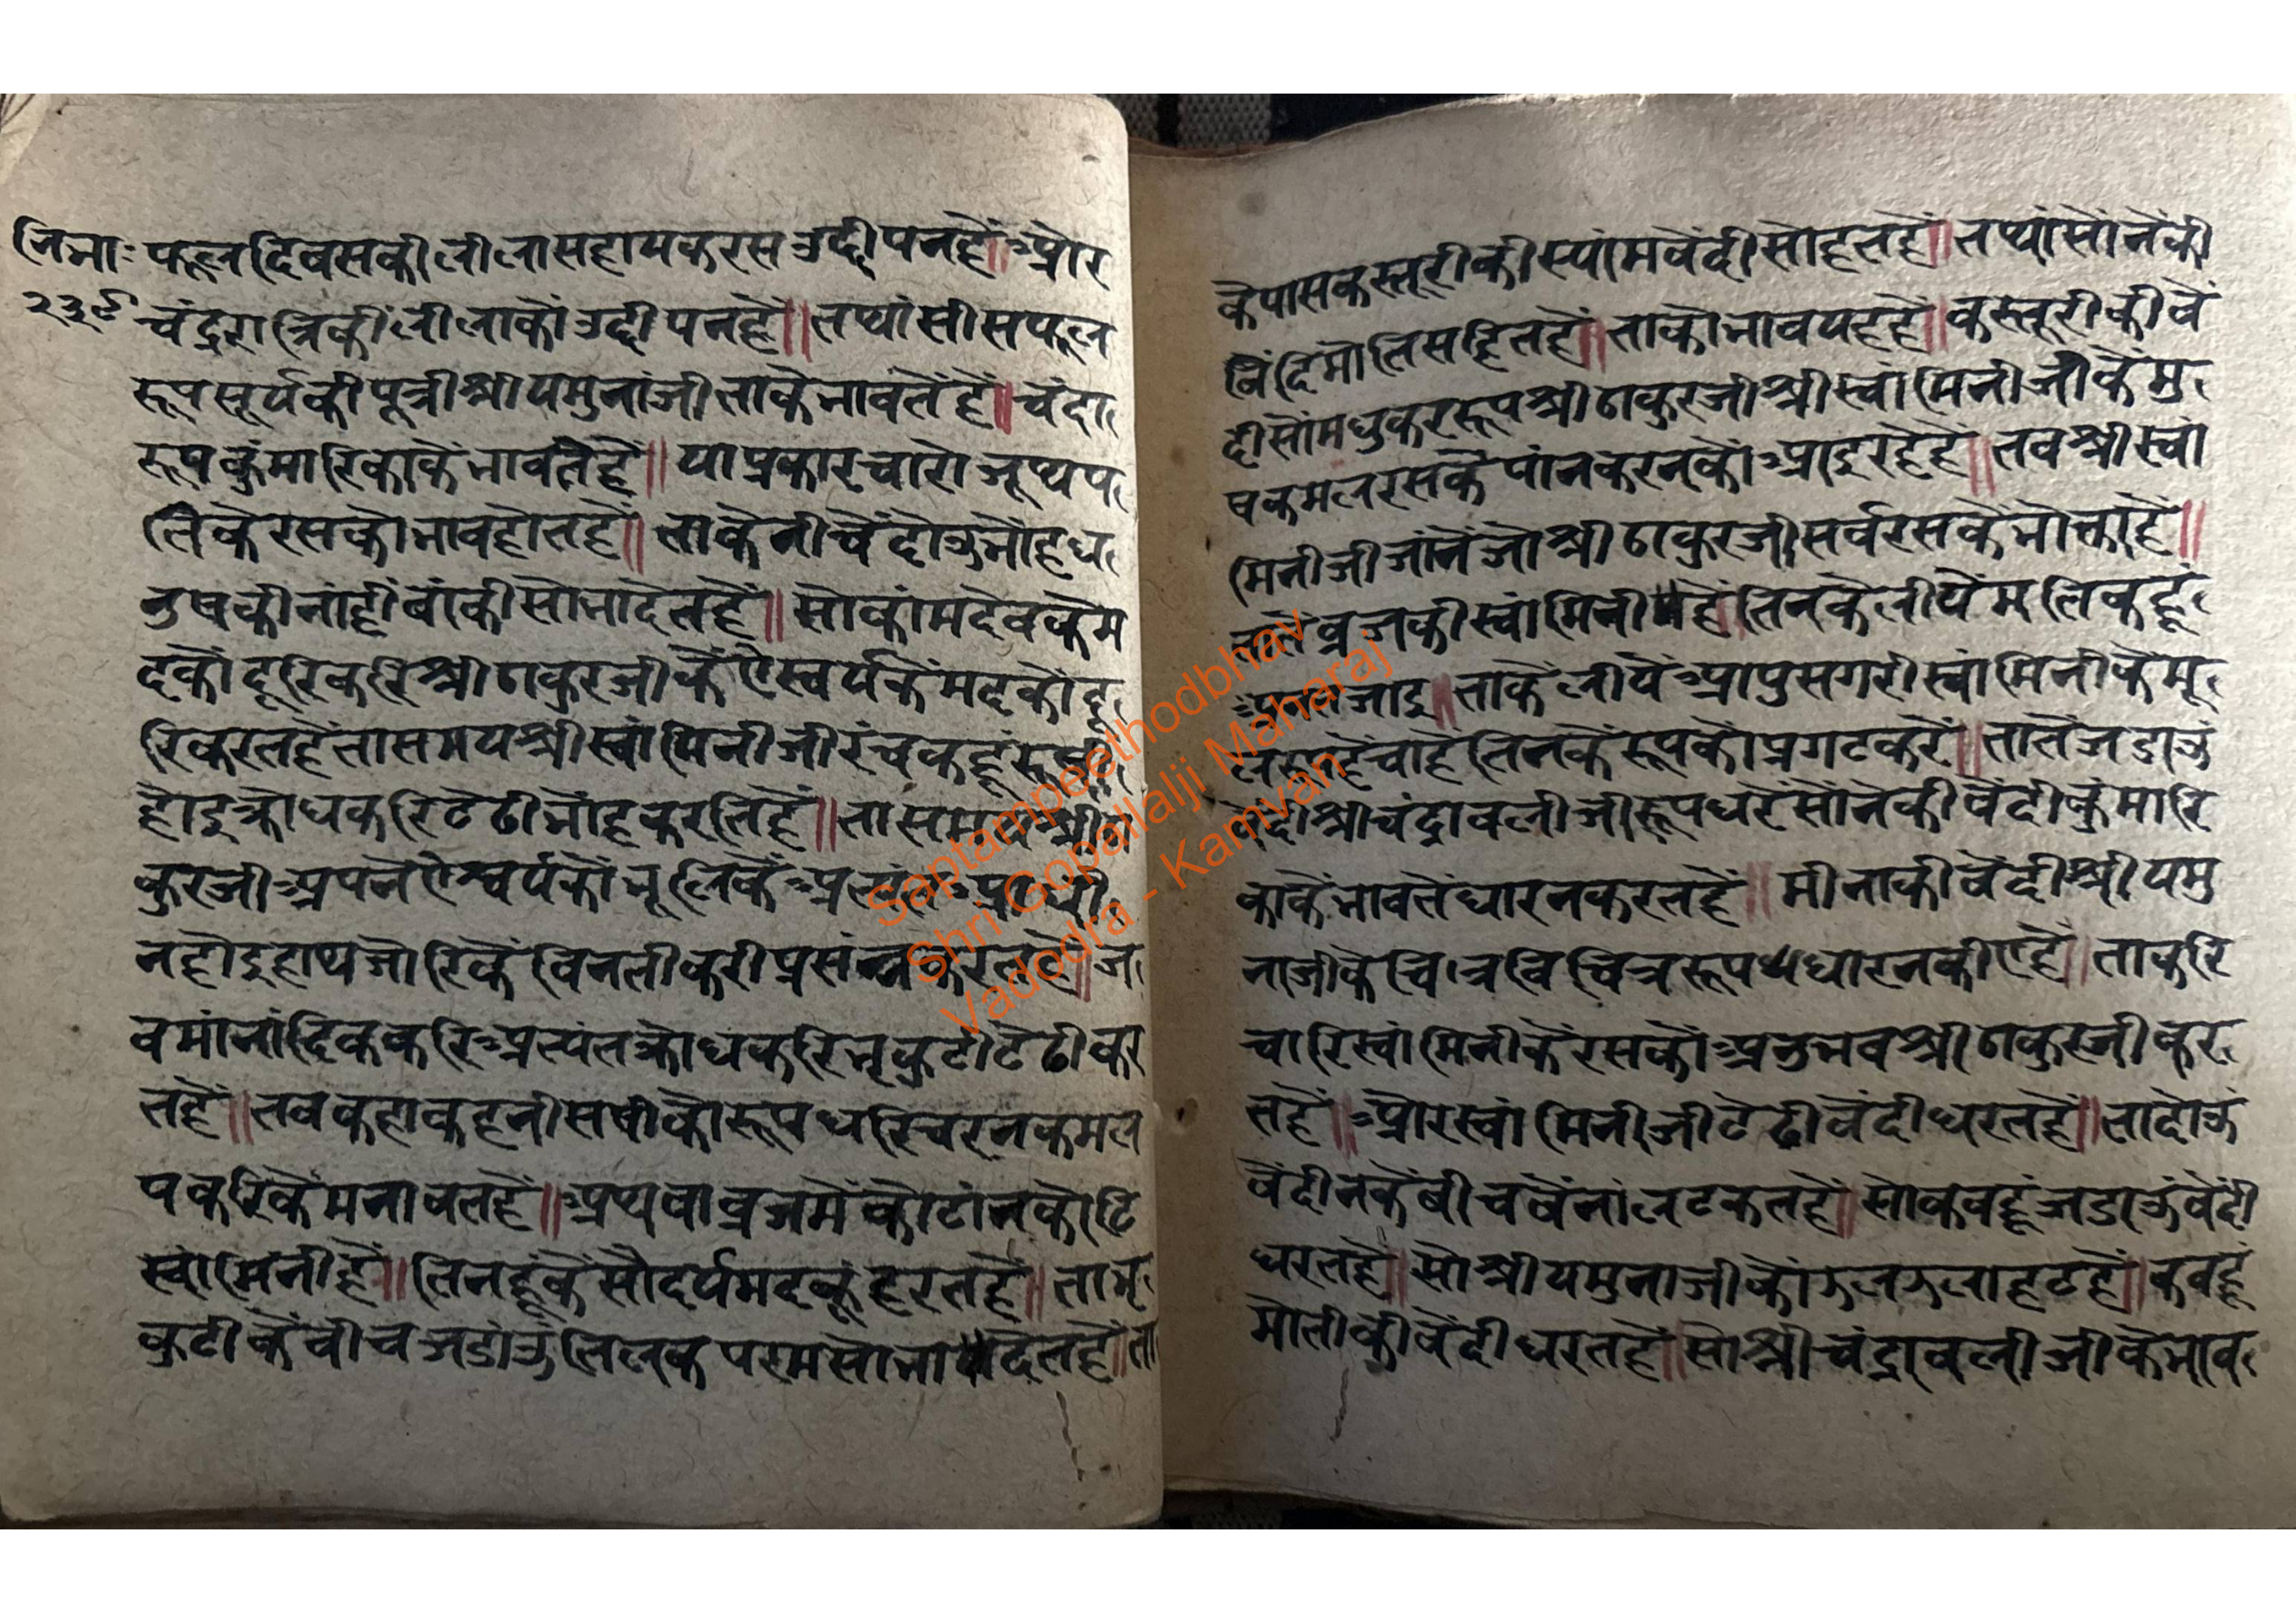 निभाः फूल दिवसकी लीलासहायकरसउद्दीपनहै॥ और
२३९ चंद्ररात्रिकीं लीलाकौं उद्दीपनहै॥ तथां सीसफूल
रूपसूर्यकी पूत्री श्रीयमुनांजी ताकेभावतेंहैं॥ चंदा
रूपकुंमारिकाकेंभावतेहैं॥ याप्रकारचारोजूथप
तिकेरसकोभावहोतहै॥ ताकेनीचेंदोउभोंहध
नुषकीनांहीं बांकीसोभादेतहैं॥ सोकांमदेवकेम
दकौंदूरिकरिश्रीठाकुरजीकेंऐस्वर्यकेंमदकोंदू
रिकरतहैंतासमयश्रीस्वांमिनीजीरंचकहूं
होइक्रोधकरिटेढीभोंहकरतिहैं॥ तासमय श्री
कुरजीअपनेंऐश्वर्यकोंभूलिकें
नहोइहाथजोरिकेंविनतीकरीप्रसंन्न ज
वमांनांदिककरिअत्यंतक्रोधकरिभृकुटीटेढीकर
तहैं॥ तबकहाकहनीसषीकोरूपधरिचरनकमल
पकरिकेंमनावतहैं॥ अथवाव्रजमेंकोटांनकोटि
स्वांमिनीहैं॥ तिनहूंकेंसौंदर्यमदकूंहरतहैं॥ ताभृ
कुटीकेंबीचजडाउतिलकपरमसोभादेतहैं॥ ता
केपासकस्तूरीकीस्यांमबेंदीसोहतहैं॥ तथांसोंनेंकी
बिंदिमोतिसहितहैं॥ ताकोभावयहहै॥ कस्तूरीकीबें
दीसोंमधुकररूपश्रीठाकुरजीश्रीस्वांमिनीजीकेमु
षकमलरसकेंपांनकरनकोंआइरहेहैं॥ तबश्रीस्वां
मिनीजीजांनेंजोश्रीठाकुरजीसर्वरसकेभोक्ताहैं॥
तातेंव्रजकीस्वांमिनीहैं॥ तिनकेलीयेंमतिकहूं
अनतजाइ॥ ताकेंलीयेंआपुसगरीस्वांमिनीकेमू
लरूपहैंचाहेंतिनकेंरूपकोंप्रगटकरें॥ तातेंजडाउ
बेंदीश्रीचंद्रावलीजीरूपधरेंसोंनेकीबेंदीकुंमारि
काकेंभावतेंधारनकरतहैं॥ मीनाकीबेंदीश्रीयमु
नाजीकेचित्रविचित्ररूपधारनकीएहैं॥ ताकरि
चारिस्वांमिनीकेंरसकोंअनुभवश्रीठाकुरजीकर
तहैं॥ औरस्वांमिनीजीटेढीबेंदीधरतहैं॥ तादोऊ
बेंदीनकेंबीचबेंनांलटकतहैं॥ सोकबहूंजडाऊंबेंदी
धरतहैं॥ सोश्रीयमुनाजीकों कबहूं
मोतीकीबेंदीधरतहैं॥ सोश्रीचंद्रावलीजीकेभाव
Saptampeethodbhav
Shri Gopallalji Maharaj
Vadodra - Kamvan